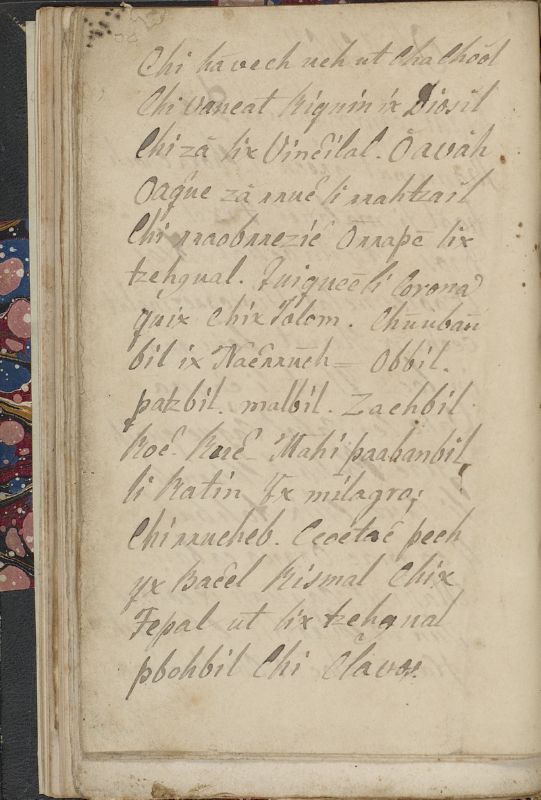 Chi ka vech neh ut Cha Chōōl
Chi vancat kiquin ix Diosil
Chi zā lix Vinĉilal. Ōavāh
Oaq̂ue zā mueĉ li mahtzail
Chi maobmezie Ōmapē lix
tzehqual. Quiqueē li Corona
quix Chix Iolom. Chūubañ
bil ix Naĉmuch = Obbil.
patzbil. malbil. Zachbil
Koĉ Kuĉ Mahi paabanbil
li Katin Ix milagro;
Chimucheb. Ccoetaĉ pech
yx Baĉel Kismal Chix
Tepal ut lix tzehqual
pbohbil Chi Clavos.